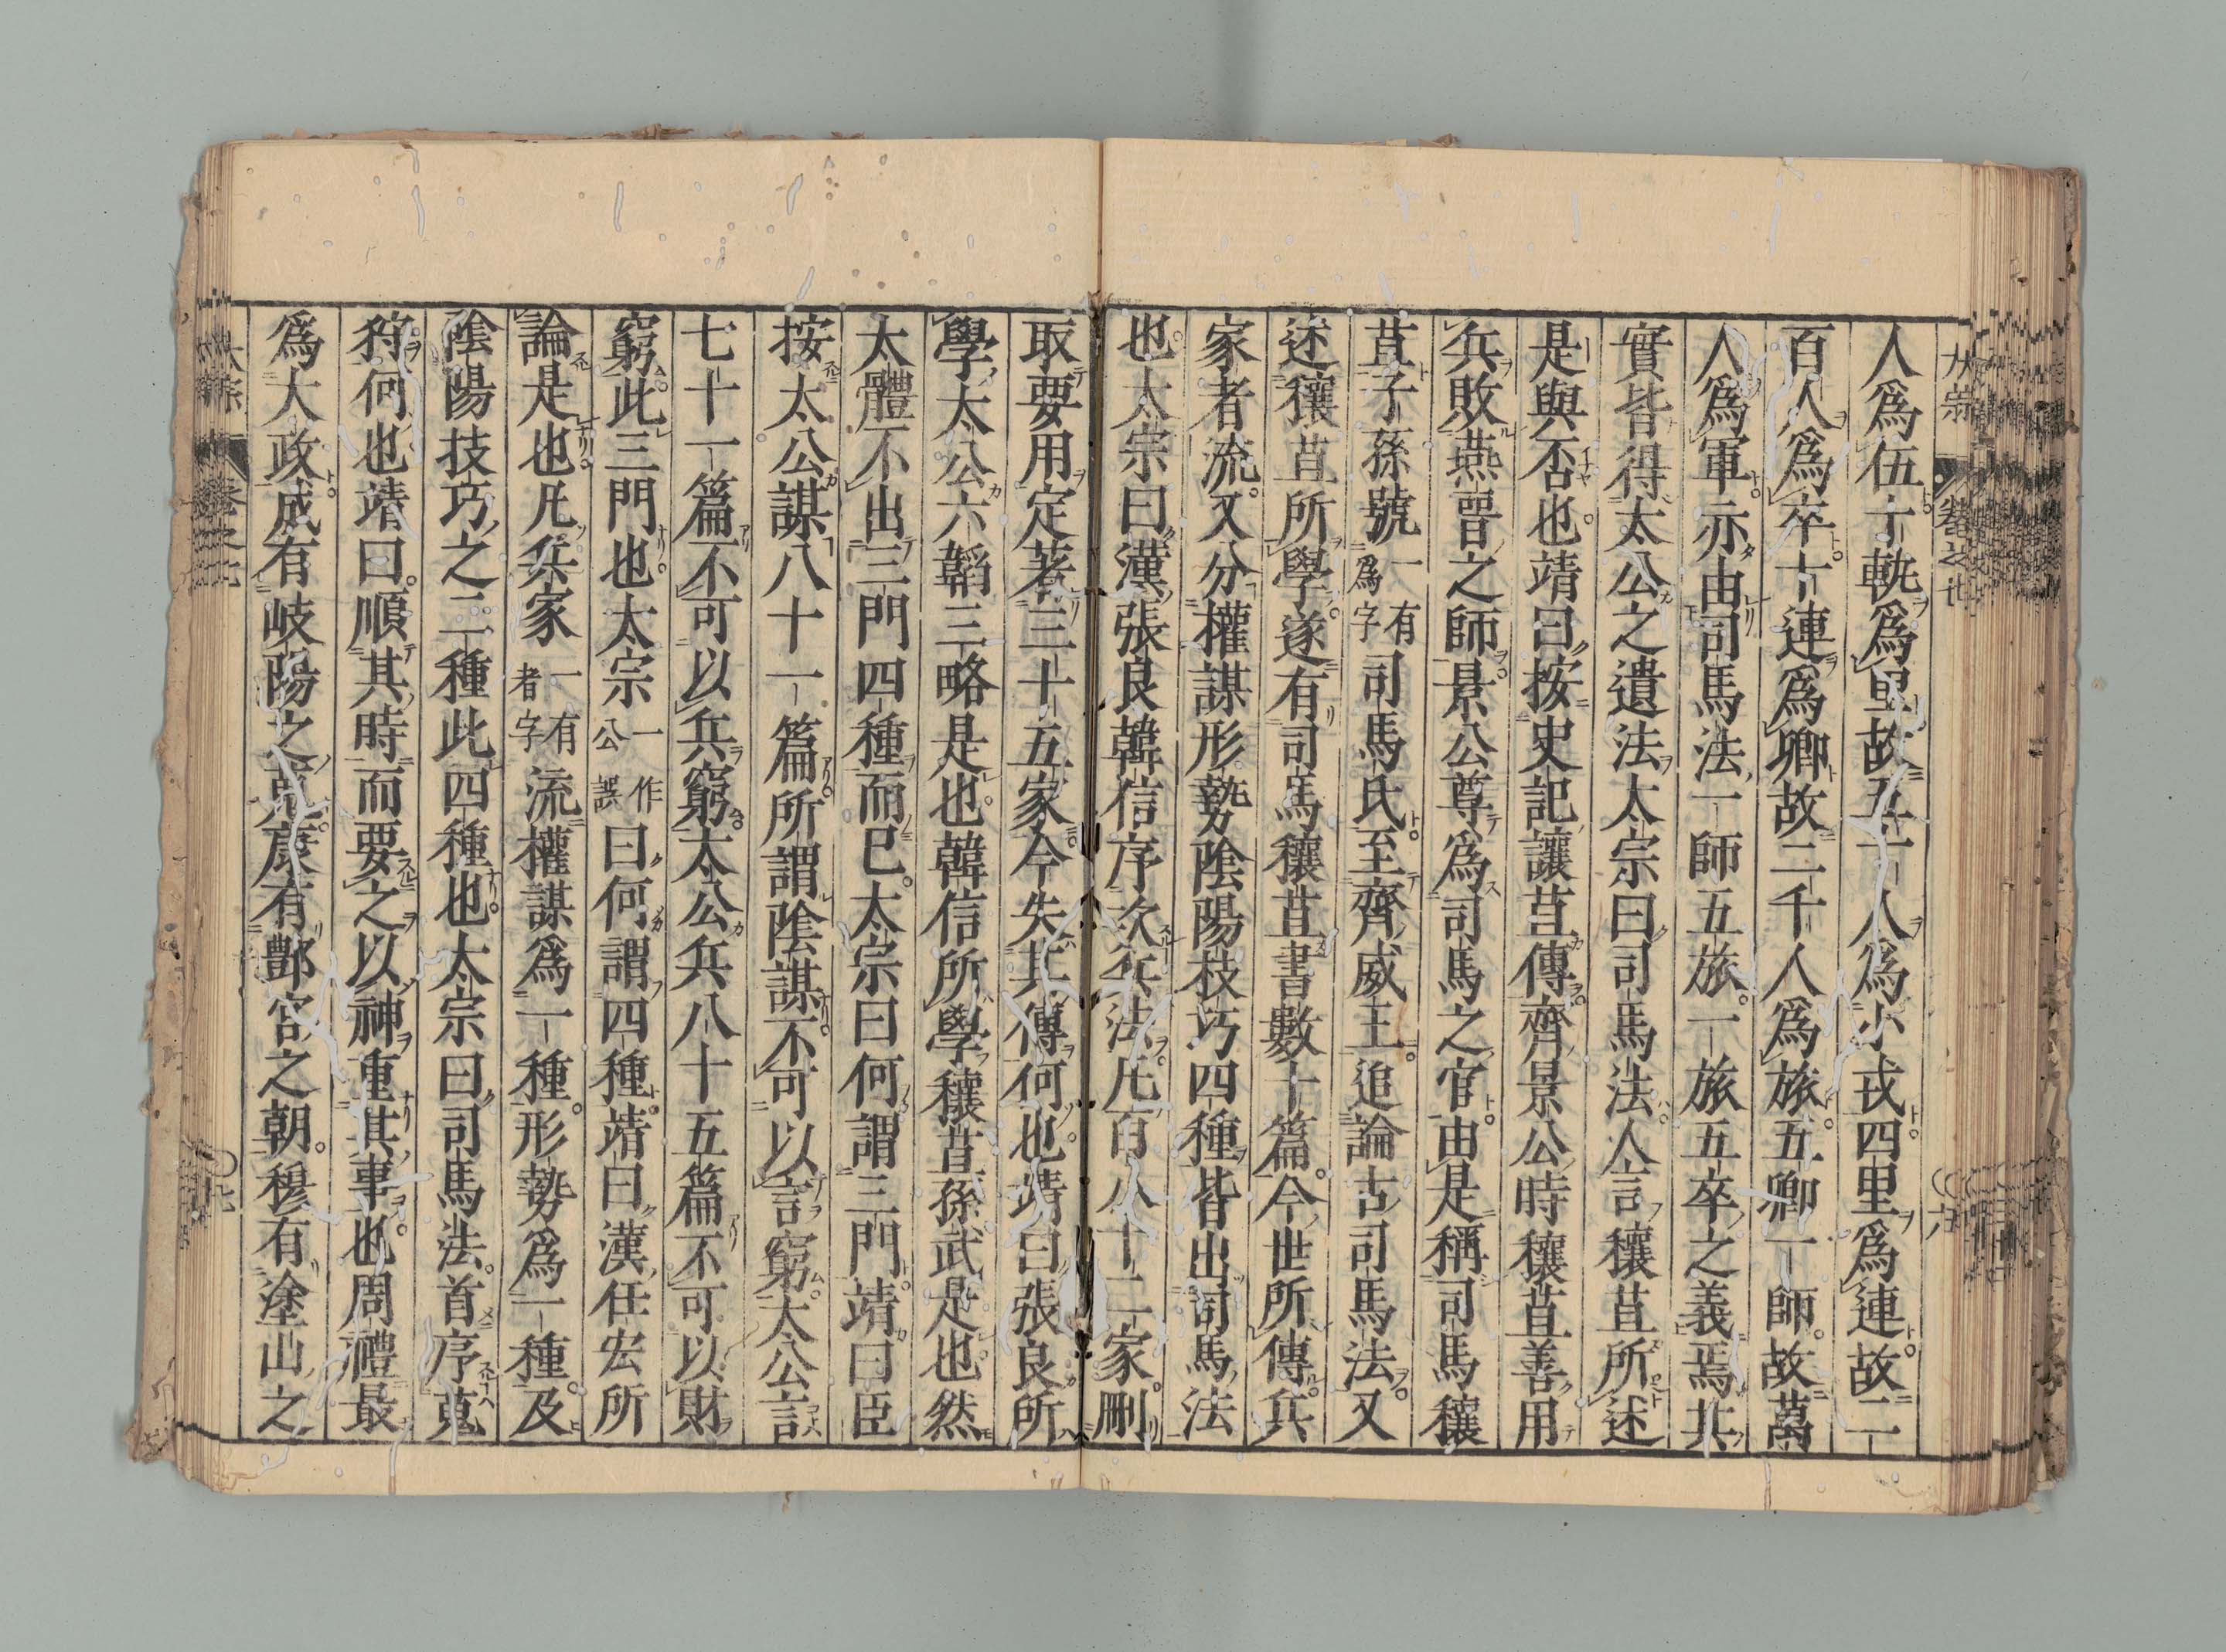 人爲伍十軌爲里故五十人爲小戎四里爲連故二
百人爲卒十連爲鄉故二千人爲旅五鄉一師故萬
人爲軍亦由司馬法一師五旅一旅五卒之義焉其
實皆得太公之遺法太宗曰司馬法人言穰苴所述
是與否也靖曰按史記讓苴傳齊景公時穰苴善用
兵敗燕晋之師景公尊爲司馬之官由是稱司馬穰
苴子孫號一有爲字司馬氏至齊威王追論古司馬法又
述穰苴所學遂有司馬穰苴書數十篇今世所傳兵
家者流又分權謀形勢陰陽技巧四種皆出司馬法
也太宗曰漢張良韓信序次兵法凡百八十二家刪
取要用定著三十五家今失其傳何也靖曰張良所
學太公六韜三略是也韓信所學穰苴孫武是也然
太體不出三門四種而已太宗曰何謂三門靖曰臣
按太公謀八十一篇所謂陰謀不可以言窮太公言
七十一篇不可以兵窮太公兵八十五篇不可以財
窮此三門也太宗一作公誤曰何謂四種靖曰漢任宏所
論是也凡兵家一有者字流權謀爲一種形勢爲一種及
陰陽技巧之二種此四種也太宗曰司馬法首序蒐
狩何也靖曰順其時而要之以神重其事也周禮最
爲大政成有岐陽之蒐康有酆宮之朝穆有塗山之